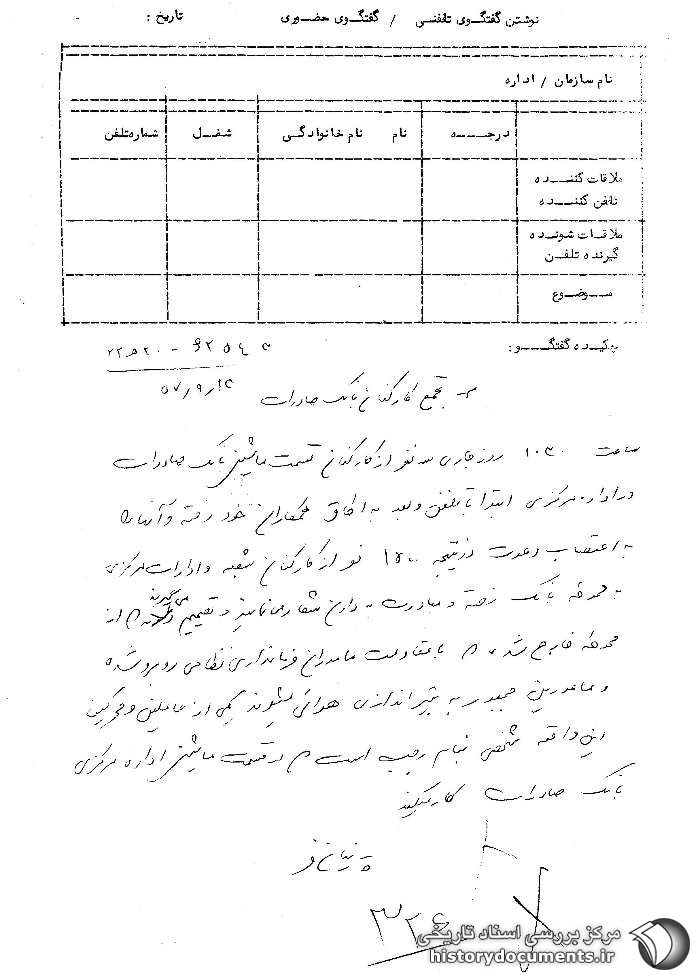 نوشتن گفتگوی تلفنی / گفتگوی حضوری تاریخ :
نام سازمان / اداره
درجه نام نام خانوادگی شغل شماره تلفن
ملاقات کننده
تلفن کننده
ملاقات شونده
گیرنده تلفن
موضوع
چکیده گفتگو:
تجمع کارکنان بانک صادرات
ساعت ۱۰۳۰ روز جاری سه نفر از کارکنان قسمت ماشینی بانک صادرات
در اداره مرکزی ابتدا با تلفن و بعد به اطاق همکاران خود رفته و آنان را
به اعتصاب دعوت در نتیجه ۱۵۰۰ نفر از کارکنان شعبه و ادارات مرکزی
به محوطه بانک رفته و مبادرت به دادن شعار می‌نمایند و تصمیم می‌گیرند از
محوطه خارج شوند با مقاومت مامورین فرمانداری نظامی روبرو شده
و مامورین مجبور به تیراندازی هوائی میشوند یکی از عاملین و محرکین
این واقعه شخصی بنام رجب است در قسمت ماشینی اداره مرکزی
بانک صادرات کار میکند
۳۲۶
مرکز بررسی اسناد تاریخی
historydocuments.ir